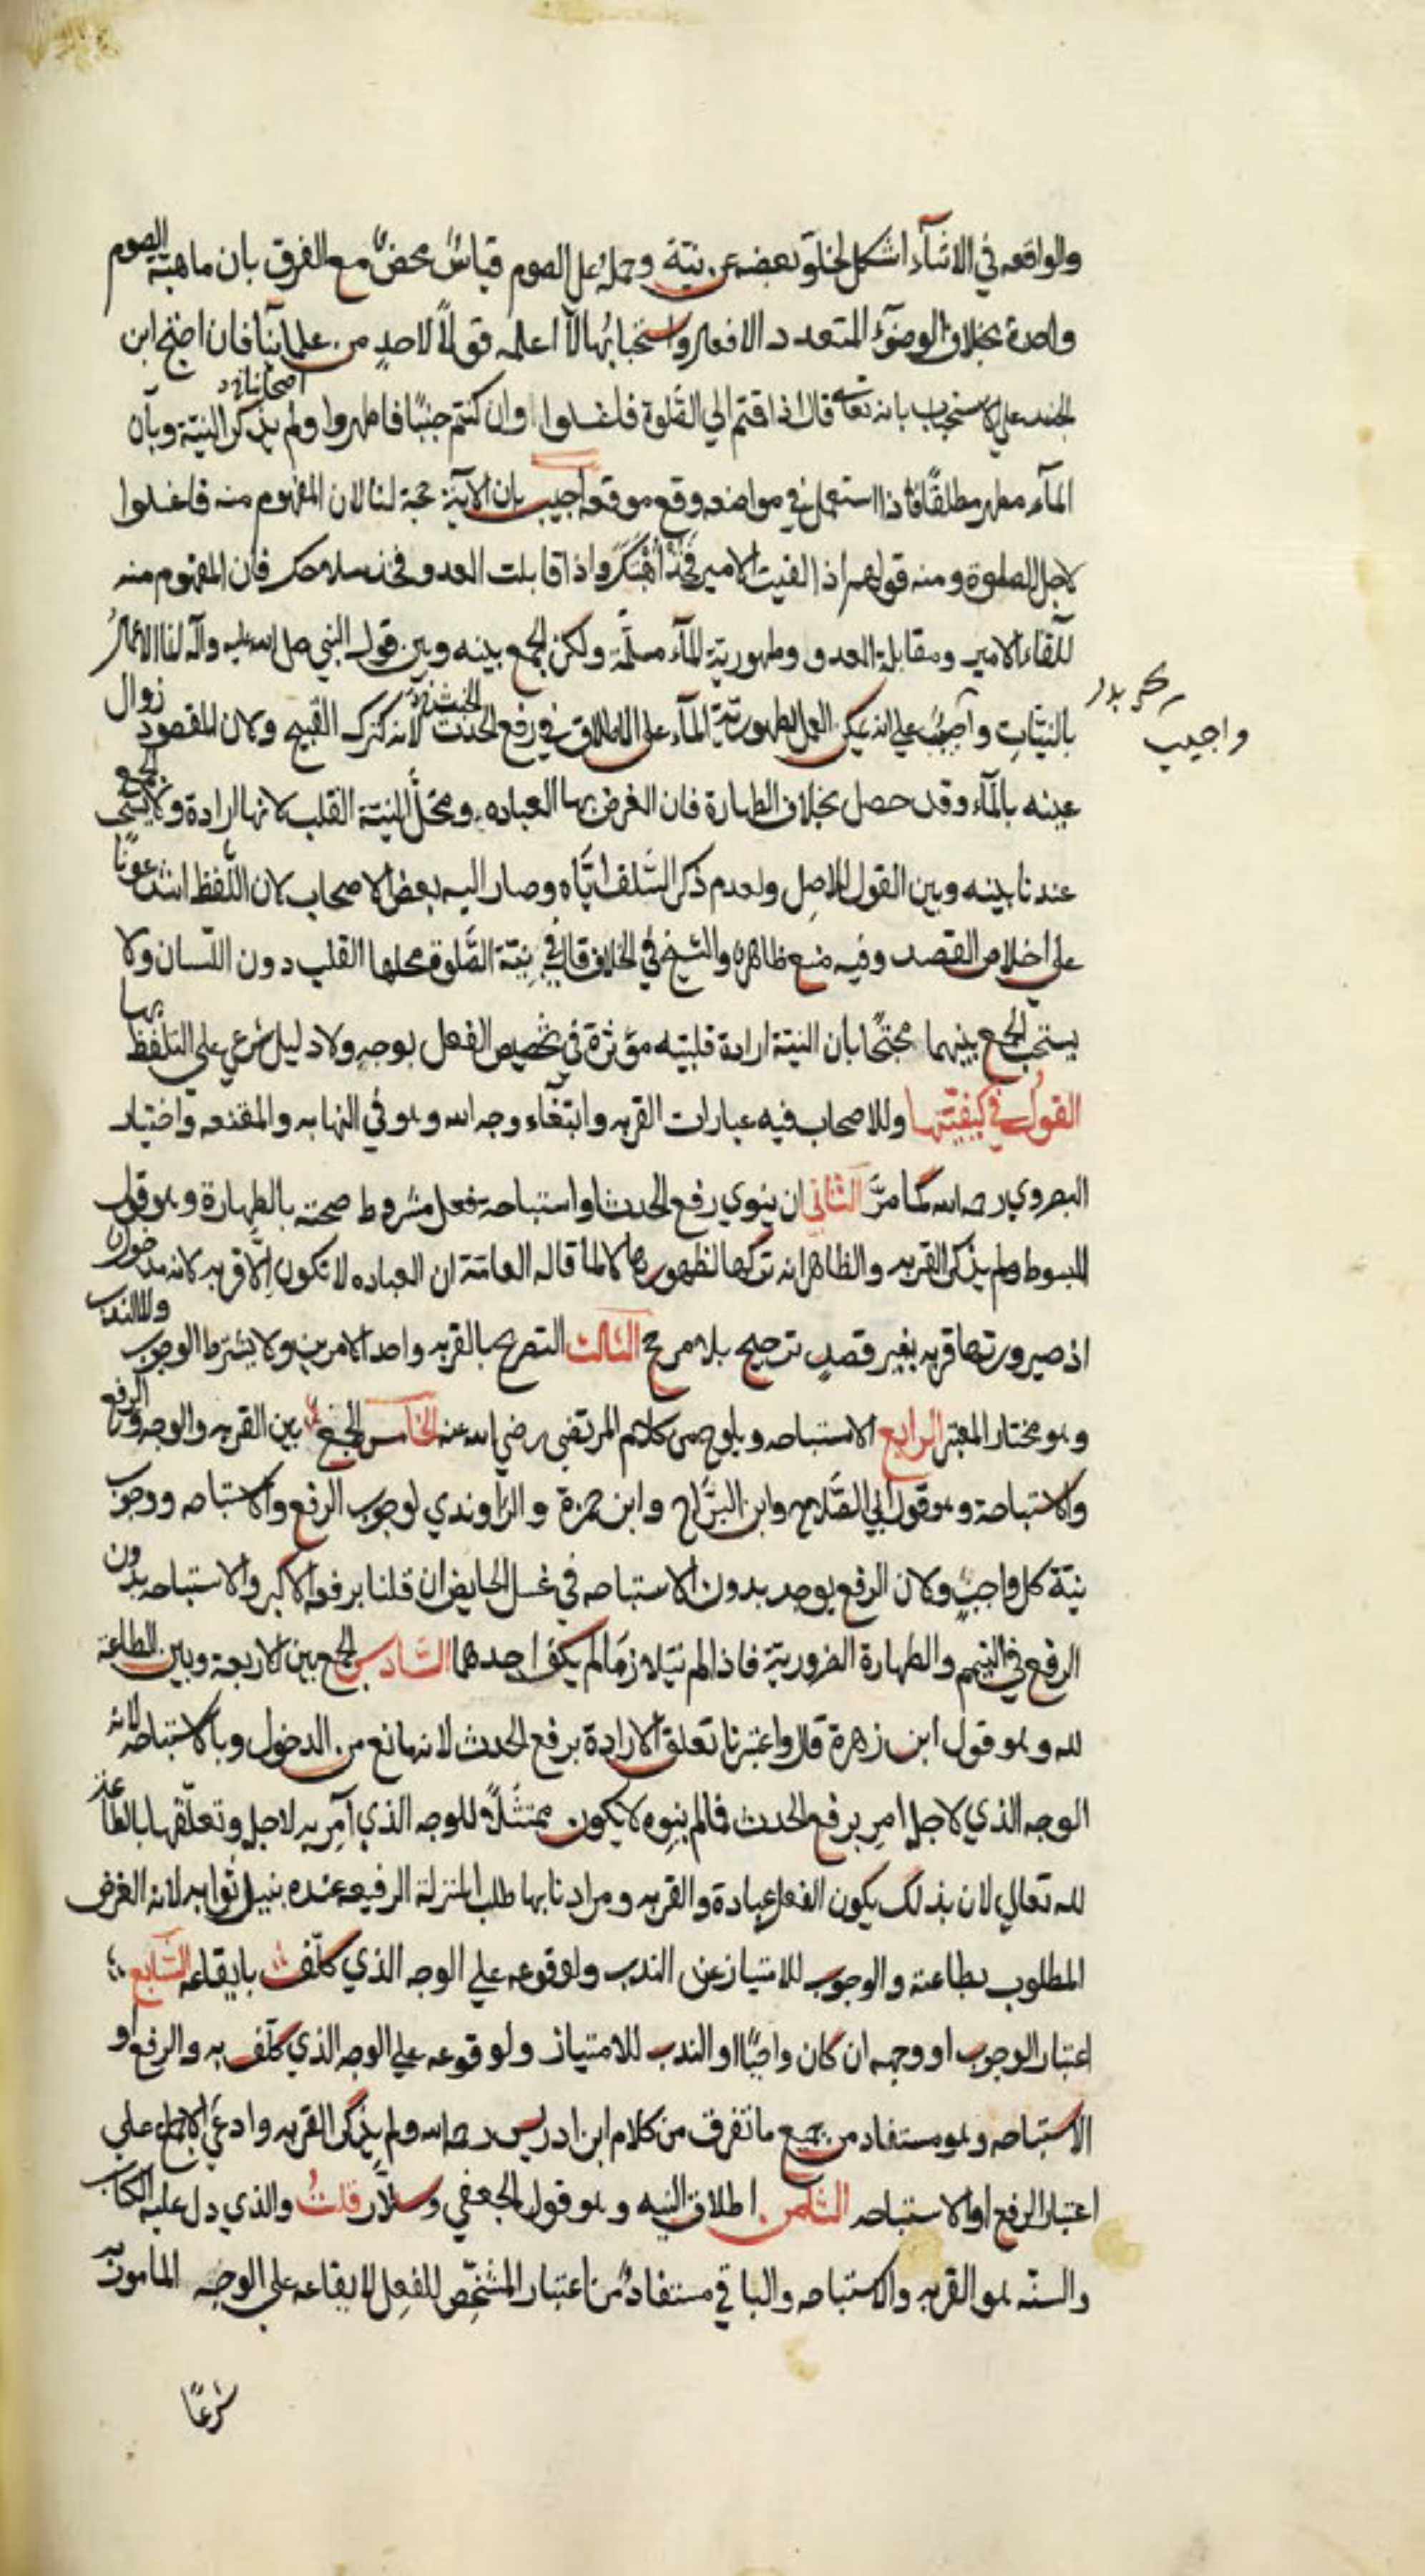 والواقعه في الاثناء اشكل لخلو بعضه عن نيّة وحمله على الصوم قياسٌ محضٌ مع الفرق بان ماهيّة الصوم
واحدة بخلاف الوضوء المتعدد الافعال واستحبابها لا اعلمه قولاً لاحدٍ من علمائنا فان احتج ابن
اصحابنا
الجنيد على الاستحباب بانه تعالى قال اذا قمتم الي الصّلوة فاغسلوا وان كنتم جنبًا فاطهروا ولم يذكر النيّة وبأن
المآء مطهر مطلقًا فاذا استعمل في مواضعه وقع موقعه اجيب بان الآية حجة لنا لان المفهوم منه فاغسلوا
لاجل الصلوة ومنه قولهم اذا لقيت الامير فخُذْ أُهْبَتَكَ واذا قابلت العدو فخذ سلاحك فان المفهوم منه
للقاء الامير ومقابلة العدو وطهورية المآء مسلّمة ولكن الجمع بينه وبين قول النبي صلى الله عليه وآله انما الاعمال
بالنيّات واجيب على انه يمكن العمل بطهوريّة المآء على الاطلاق في رفع الحدث لانه كترك القبيح وكان المقصود زوال
واجيب
عينه بالمآء وقد حصل بخلاف الطهارة فان الغرض بها العباده ومحلُّ النيّة القلب لانها ارادة ولا يستحب الجمع
عندنا بينه وبين القول للاصل ولعدم ذكر السّلف ايّاه وصار اليه بعض الاصحاب لان اللّفظ اشد عونًا
على اخلاص القصد وفيه منع ظاهر والشيخ في الخلاف قال في نيّة الصّلوة محلها القلب دون اللّسان ولا
يستحبّ الجمع بينهما محتجًا بان النيّة ارادة قلبيّه مؤثرة في تخصيص الفعل بوجهٍ ولا دليل شرعي على التلفّظ بها
القول في كيفيّتها وللاصحاب فيه عبارات القربه وابتغاء وجه الله وهو في النهايه والمقنعه واختيار
البصروي رحمه الله كما مرّ الثّاني ان ينوي رفع الحدث او استباحه فعل مشروط صحته بالطهارة وهو قول
المبسوط ولم يذكر القربه والظاهر انه تركها لظهورها لا لما قاله العامّة ان العباده لا تكون الّا قربه لانه مدخول
اذ صيرورتها قربه بغير قصدٍ ترجيح بلا مرجح الثالث التصريح بالقربه واحد الامرين ولا يشترط الوجوب ولا الندب
وهو مختار المعتبر الرابع الاستباحه ويلوح من كلام المرتضي رضي الله عنه الخامس الجمع بين القربه والوجه والرفع
والاستباحة وهو قول ابي الصّلاح وابن البرّاج وابن حمزة والرّاوندي لوجوب الرفع والاستباحه ووجوب
نية كل واجبٍ ولان الرفع يوجد بدون الاستباحه في غسل الحايض ان قلنا برفعه الاكبر والاستباحه بدون
الرفع في التيمم والطهارة الضروريّة فاذا لم يتلازما لم يكف احدهما السّادس الجمع بين الاربعة وبين الطاعة
لله وهو قول ابن زهرة قال واعتبرنا تعلق الارادة برفع الحدث لانه مانع من الدخول وبالاستباحه لانه
الوجه الذي لاجله امر برفع الحدث فما لم ينوه لا يكون ممتثلاً للوجه الذي أُمر به لاجله وتعلّقها بالطّاعة
لله تعالى لان بذلك يكون الفعل عبادة والقربه ومرادنا بها طلب المنزلة الرفيعه عنده بنيل ثوابه لانه الغرض
المطلوب بطاعته والوجوب للامتياز عن الندب ولوقوعه علي الوجه الذي كلّف بايقاعه السّابع
اعتبار الوجوب او وجهه ان كان واجبًا او الندب للامتياز ولوقوعه علي الوجه الذي كلّف به والرفع او
الاستباحه وهو مستفاد من جمع ما تفرق من كلام ابن ادريس رحمه الله ولم يذكر القربه وادعي الاجماع علي
اعتبار الرفع او الاستباحه الثّامن اطلاق النيه وهو قول الجعفي وسلّار قلتُ والذي دل عليه الكتاب
والسنّه هو القربه والاستباحه والباقي مستفادٌ من اعتبار المشخّص للفعل لايقاعه على الوجه المامور به
شرعًا